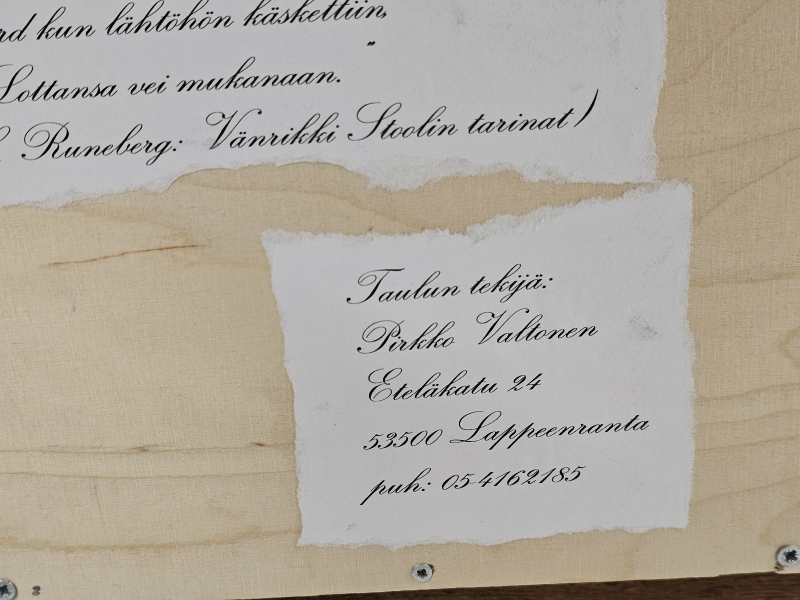 kun lähtöhön käskettiin,
Lottansa vei mukanaan. "
Runeberg: Vänrikki Stoolin tarinat)
Taulun tekijä:
Pirkko Valtonen
Eteläkatu 24
53500 Lappeenranta
puh: 05-4162185